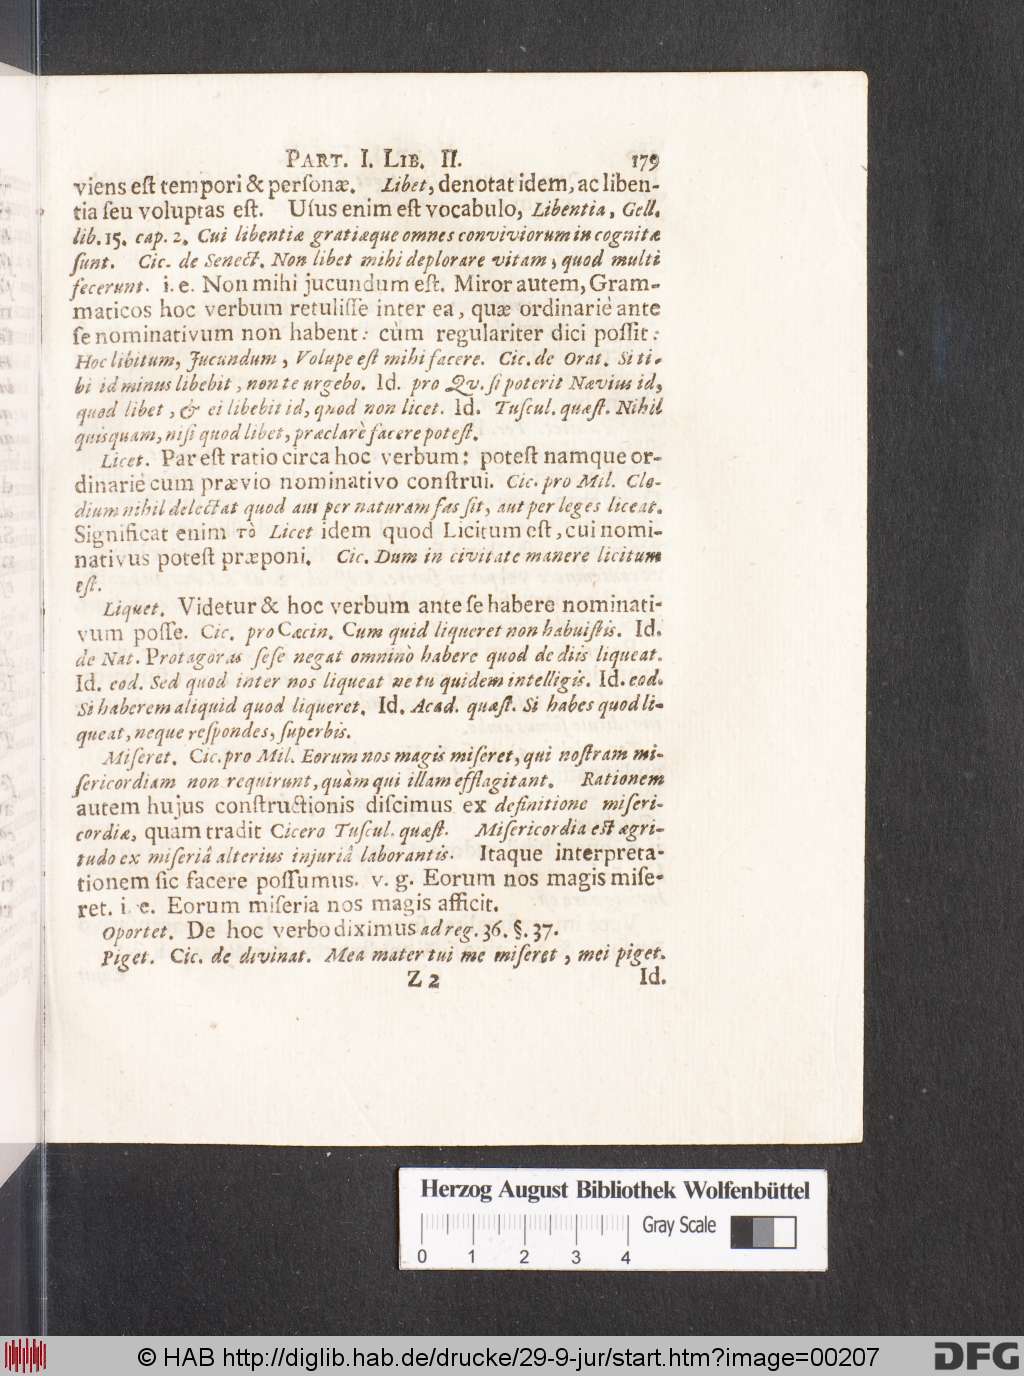 PART. I. LIB. II. 179
viens eſt tempori & perſonæ. Libet, denotat idem, ac liben-
tia ſeu voluptas eſt. Uſus enim eſt vocabulo, Libentia, Gell.
lib. 15. cap. 2. Cui libentiæ gratiæque omnes conviviorum incognitæ
ſunt. Cic. de Senect. Non libet mihi deplorare vitam, quod multi
fecerunt. i. e. Non mihi jucundum eſt. Miror autem, Gram-
maticos hoc verbum retuliſſe inter ea, quæ ordinariè ante
ſe nominativum non habent: cùm regulariter dici poſſit:
Hoc libitum, Jucundum, Volupe eſt mihi facere. Cic. de Orat. Si ti-
bi id minus libebit, non te urgebo. Id. pro Qv. ſi poterit Nævius id,
quod libet, & ei libebit id, quod non licet. Id. Tuſcul. quæſt. Nihil
quisquam, niſi quod libet, præclarè facere poteſt.
Licet. Par eſt ratio circa hoc verbum: poteſt namque or-
dinariè cum prævio nominativo conſtrui. Cic. pro Mil. Clo-
dium nihil delectat quod aut per naturam fas ſit, aut per leges liceat.
Significat enim τὸ Licet idem quod Licitum eſt, cui nomi-
nativus poteſt præponi. Cic. Dum in civitate manere licitum
eſt.
Liquet. Videtur & hoc verbum ante ſe habere nominati-
vum poſſe. Cic. pro Cæcin. Cum quid liqueret non habuiſtis. Id.
de Nat. Protagoras ſeſe negat omninò habere quod de diis liqueat.
Id. eod. Sed quod inter nos liqueat ne tu quidem intelligis. Id. eod.
Si haberem aliquid quod liqueret. Id. Acad. quæſt. Si habes quod li-
queat, neque reſpondes, ſuperbis.
Miſeret. Cic. pro Mil. Eorum nos magis miſeret, qui noſtram mi-
ſericordiam non requirunt, quàm qui illam efflagitant. Rationem
autem hujus conſtructionis diſcimus ex definitione miſeri-
cordiæ, quam tradit Cicero Tuſcul. quæſt. Miſericordia eſt ægri-
tudo ex miſeriâ alterius injuriâ laborantis. Itaque interpreta-
tionem ſic facere poſſumus. v. g. Eorum nos magis miſe-
ret. i. e. Eorum miſeria nos magis afficit.
Oportet. De hoc verbo diximus ad reg. 36. §. 37.
Piget. Cic. de divinat. Mea mater tui me miſeret, mei piget.
Z 2 Id.
Herzog August Bibliothek Wolfenbüttel
Gray Scale
0 1 2 3 4
© HAB http://diglib.hab.de/drucke/29-9-jur/start.htm?image=00207
DFG